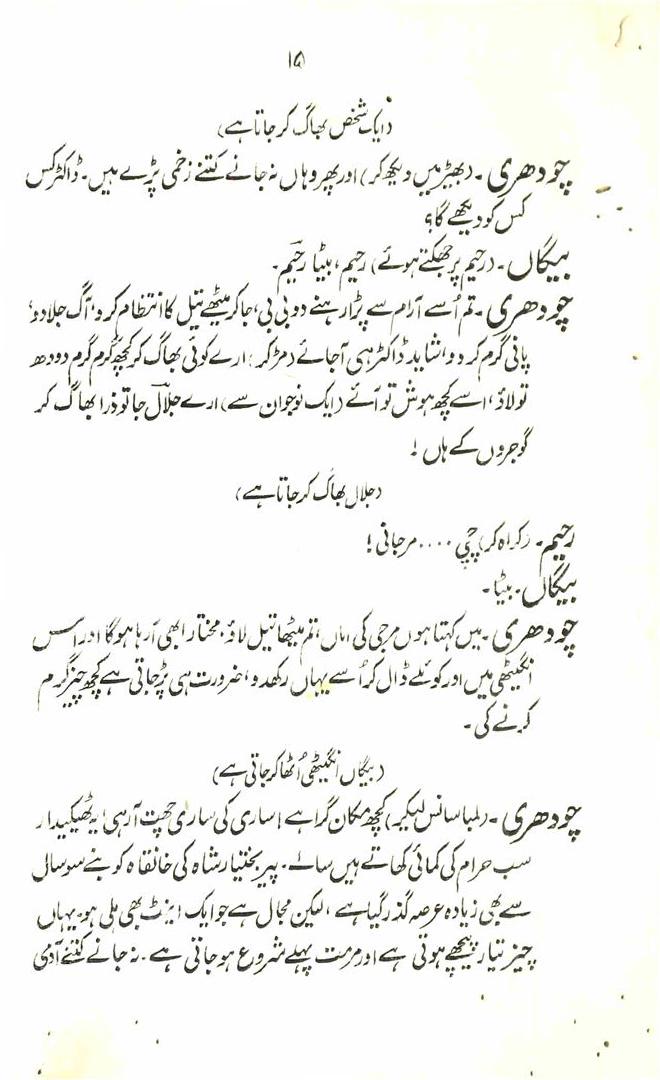 ۱۵
(ایک شخص بھاگ کر جاتا ہے)
چودھری۔ (بھیڑ میں دیکھ کر) اور پھر وہاں نہ جانے کتنے زخمی پڑے ہیں۔ ڈاکٹر کس
کس کو دیکھے گا؟
بیگاں۔ (رحیم پر جھکتے ہوئے) رحیم، بیٹا رحیم۔
چودھری۔ تم اُسے آرام سے پڑا رہنے دو بی بی، جا کر میٹھے تیل کا انتظام کرو، آگ جلا دو،
پانی گرم کر دو، شاید ڈاکٹر ہی آجائے (مڑ کر) ارے کوئی بھاگ کر کچھ گرم گرم دودھ
تو لاؤ، اسے کچھ ہوش تو آئے (ایک نوجوان سے) ارے جلال جا تو ذرا بھاگ کر
گوجروں کے ہاں!
(جلال بھاگ کر جاتا ہے)
رحیم۔ (کراہ کر) چچی .... مرجانی!
بیگاں۔ بیٹا۔
چودھری۔ میں کہتا ہوں مرجی کی اماں، تم میٹھا تیل لاؤ۔ مختار ابھی آرہا ہوگا اور اس
انگیٹھی میں اور کوئلے ڈال کر اُسے یہاں رکھدو، ضرورت ہی پڑجاتی ہے کچھ چیز گرم
کرنے کی۔
(بیگاں انگیٹھی اُٹھا کر جاتی ہے)
چودھری۔ (لمبا سانس لیکر) کچھ مکان گرا ہے! ساری کی ساری چھت آرہی! یہ ٹھیکیدار
سب حرام کی کمائی کھاتے ہیں سالے۔ پیر بختیار شاہ کی خانقاہ کو بنے سو سال
سے بھی زیادہ عرصہ گذر گیا ہے، لیکن مجال ہے جو ایک اینٹ بھی ہلی ہو۔ یہاں
چیز تیار پیچھے ہوتی ہے اور مرمت پہلے شروع ہوجاتی ہے۔ نہ جانے کتنے آدمی